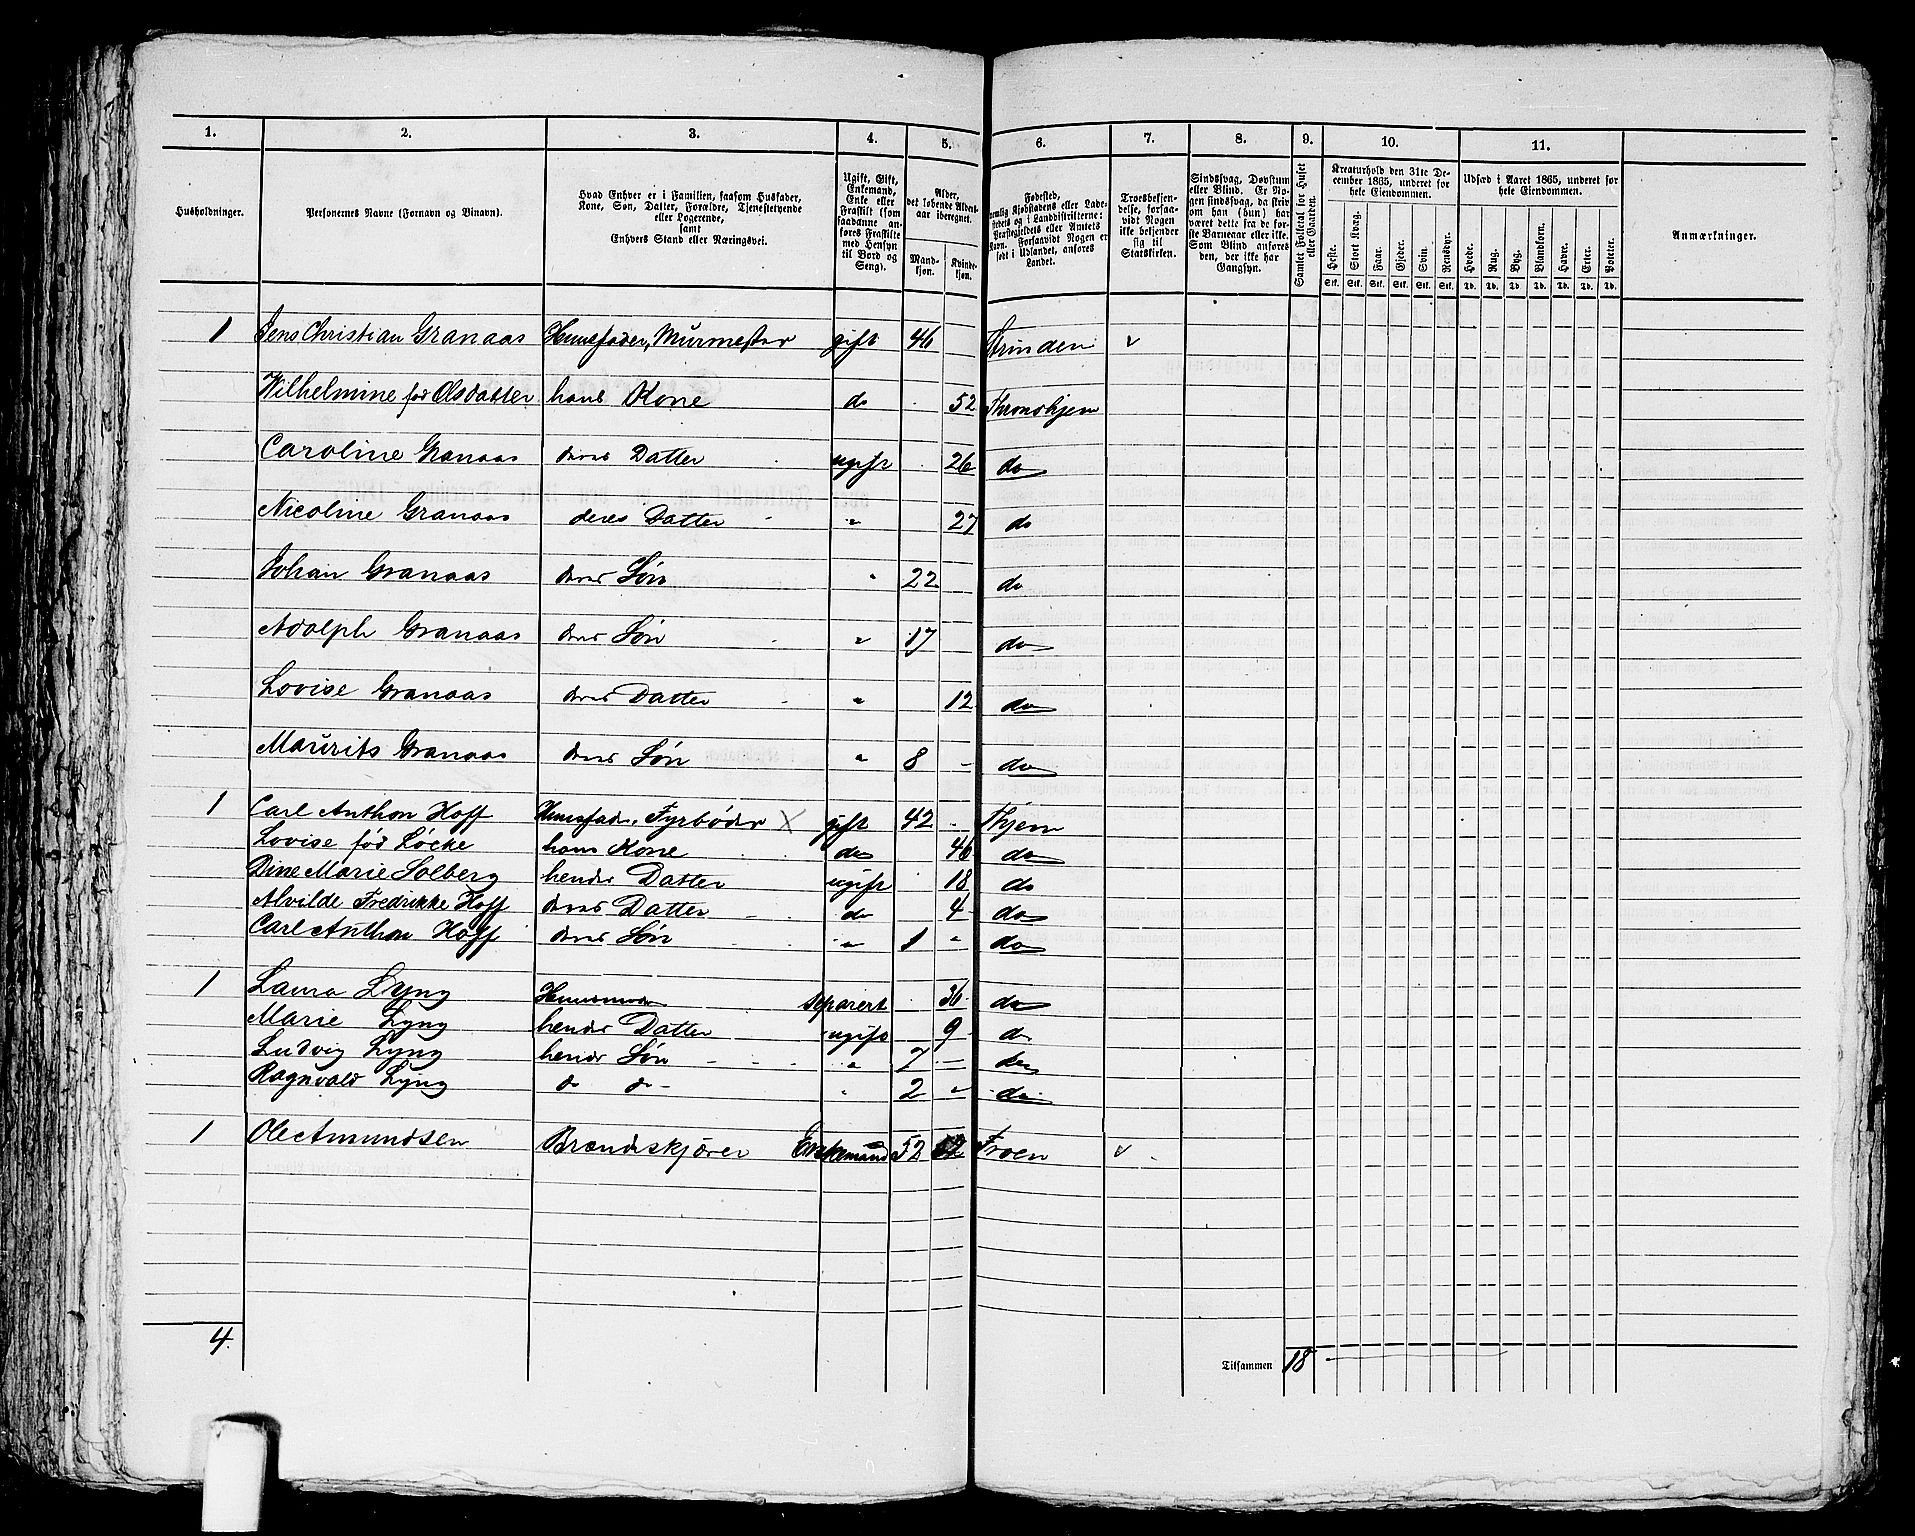 1. 2. 3. 4. 5. 6. 7. 8. 9. 10. 11.
Husholdninger.
Personernes Navne (Fornavn og Tilnavn).
Hvad Enhver er i Familien, saasom Husfader,
Kone, Søn, Datter, Forældre, Tjenestetyende
eller Logerende,
samt
Enhvers Stand eller Næringsvei.
Ugift, Gift,
Enkemand,
Enke eller
Fraskilt (som
saadanne an-
føres Fraskilte
med Hensyn
til Bord og
Seng).
Alder,
det løbende Alders-
aar iberegnet.
Mand-
kjøn.
Kvinde-
kjøn.
Fødested,
nemlig Kjøbstadens eller Lade-
stedets og i Landdistrikterne:
Præstegjeldets eller Amtets
Navn. Forsaavidt Nogen er
født i Udlandet, anføres
Landet.
Troesbekjen-
delse, forsaa-
vidt Nogen
ikke bekjender
sig til
Statskirken.
Sindssvag, Døvstum
eller Blind. Er No-
gen sindssvag, da skriv
om han (hun) har
været dette fra de før-
ste Barneaar eller ikke.
Som Blind anføres
den, der ikke har
Gangsyn.
Samlet Folketal for Huset
eller Gaarden.
Kreaturhold den 31te De-
cember 1865, underet for
hele Eiendommen.
Heste. Stort Kvæg. Faar. Gjeder. Svin. Rensdyr.
Stk. Stk. Stk. Stk. Stk. Stk.
Udsæd i Aaret 1865, underet for
hele Eiendommen.
Hvede. Rug. Byg. Blandkorn. Havre. Erter. Poteter.
Td. Td. Td. Td. Td. Td. Td.
Anmærkninger.
1 Jens Christian Granaas Huusfader, Murmester gift 46 Strinden
Wilhelmine fød Olsdatter hans Kone do 52 Thronhjem
Caroline Granaas deres Datter ugift 26 do
Nicoline Granaas deres Datter " 27 do
Johan Granaas deres Søn " 22 do
Adolph Granaas deres Søn " 17 do
Lovise Granaas deres Datter " 12 do
Maurits Granaas deres Søn " 8 - do
1 Carl Anthon Hoff Huusfader, Fyrbøder X gift 42 - Thjem
Lovise fød Løcke hans Kone do 46 do
Dine Marie Solberg hendes Datter ugift 18 do
Alvilde Fredrikke Hoff deres Datter do 4 do
Carl Anthon Hoff deres Søn " 1 " do
1 Laura Lyng Huusmoder separert 36 do
Marie Lyng hendes Datter ugift 9 do
Ludvig Lyng hendes Søn " 7 - do
Ragnvald Lyng do do " 2 " do
1 Ole Amundsen Brændskjører Enkemand 52 Froen
4.
Tilsammen 18